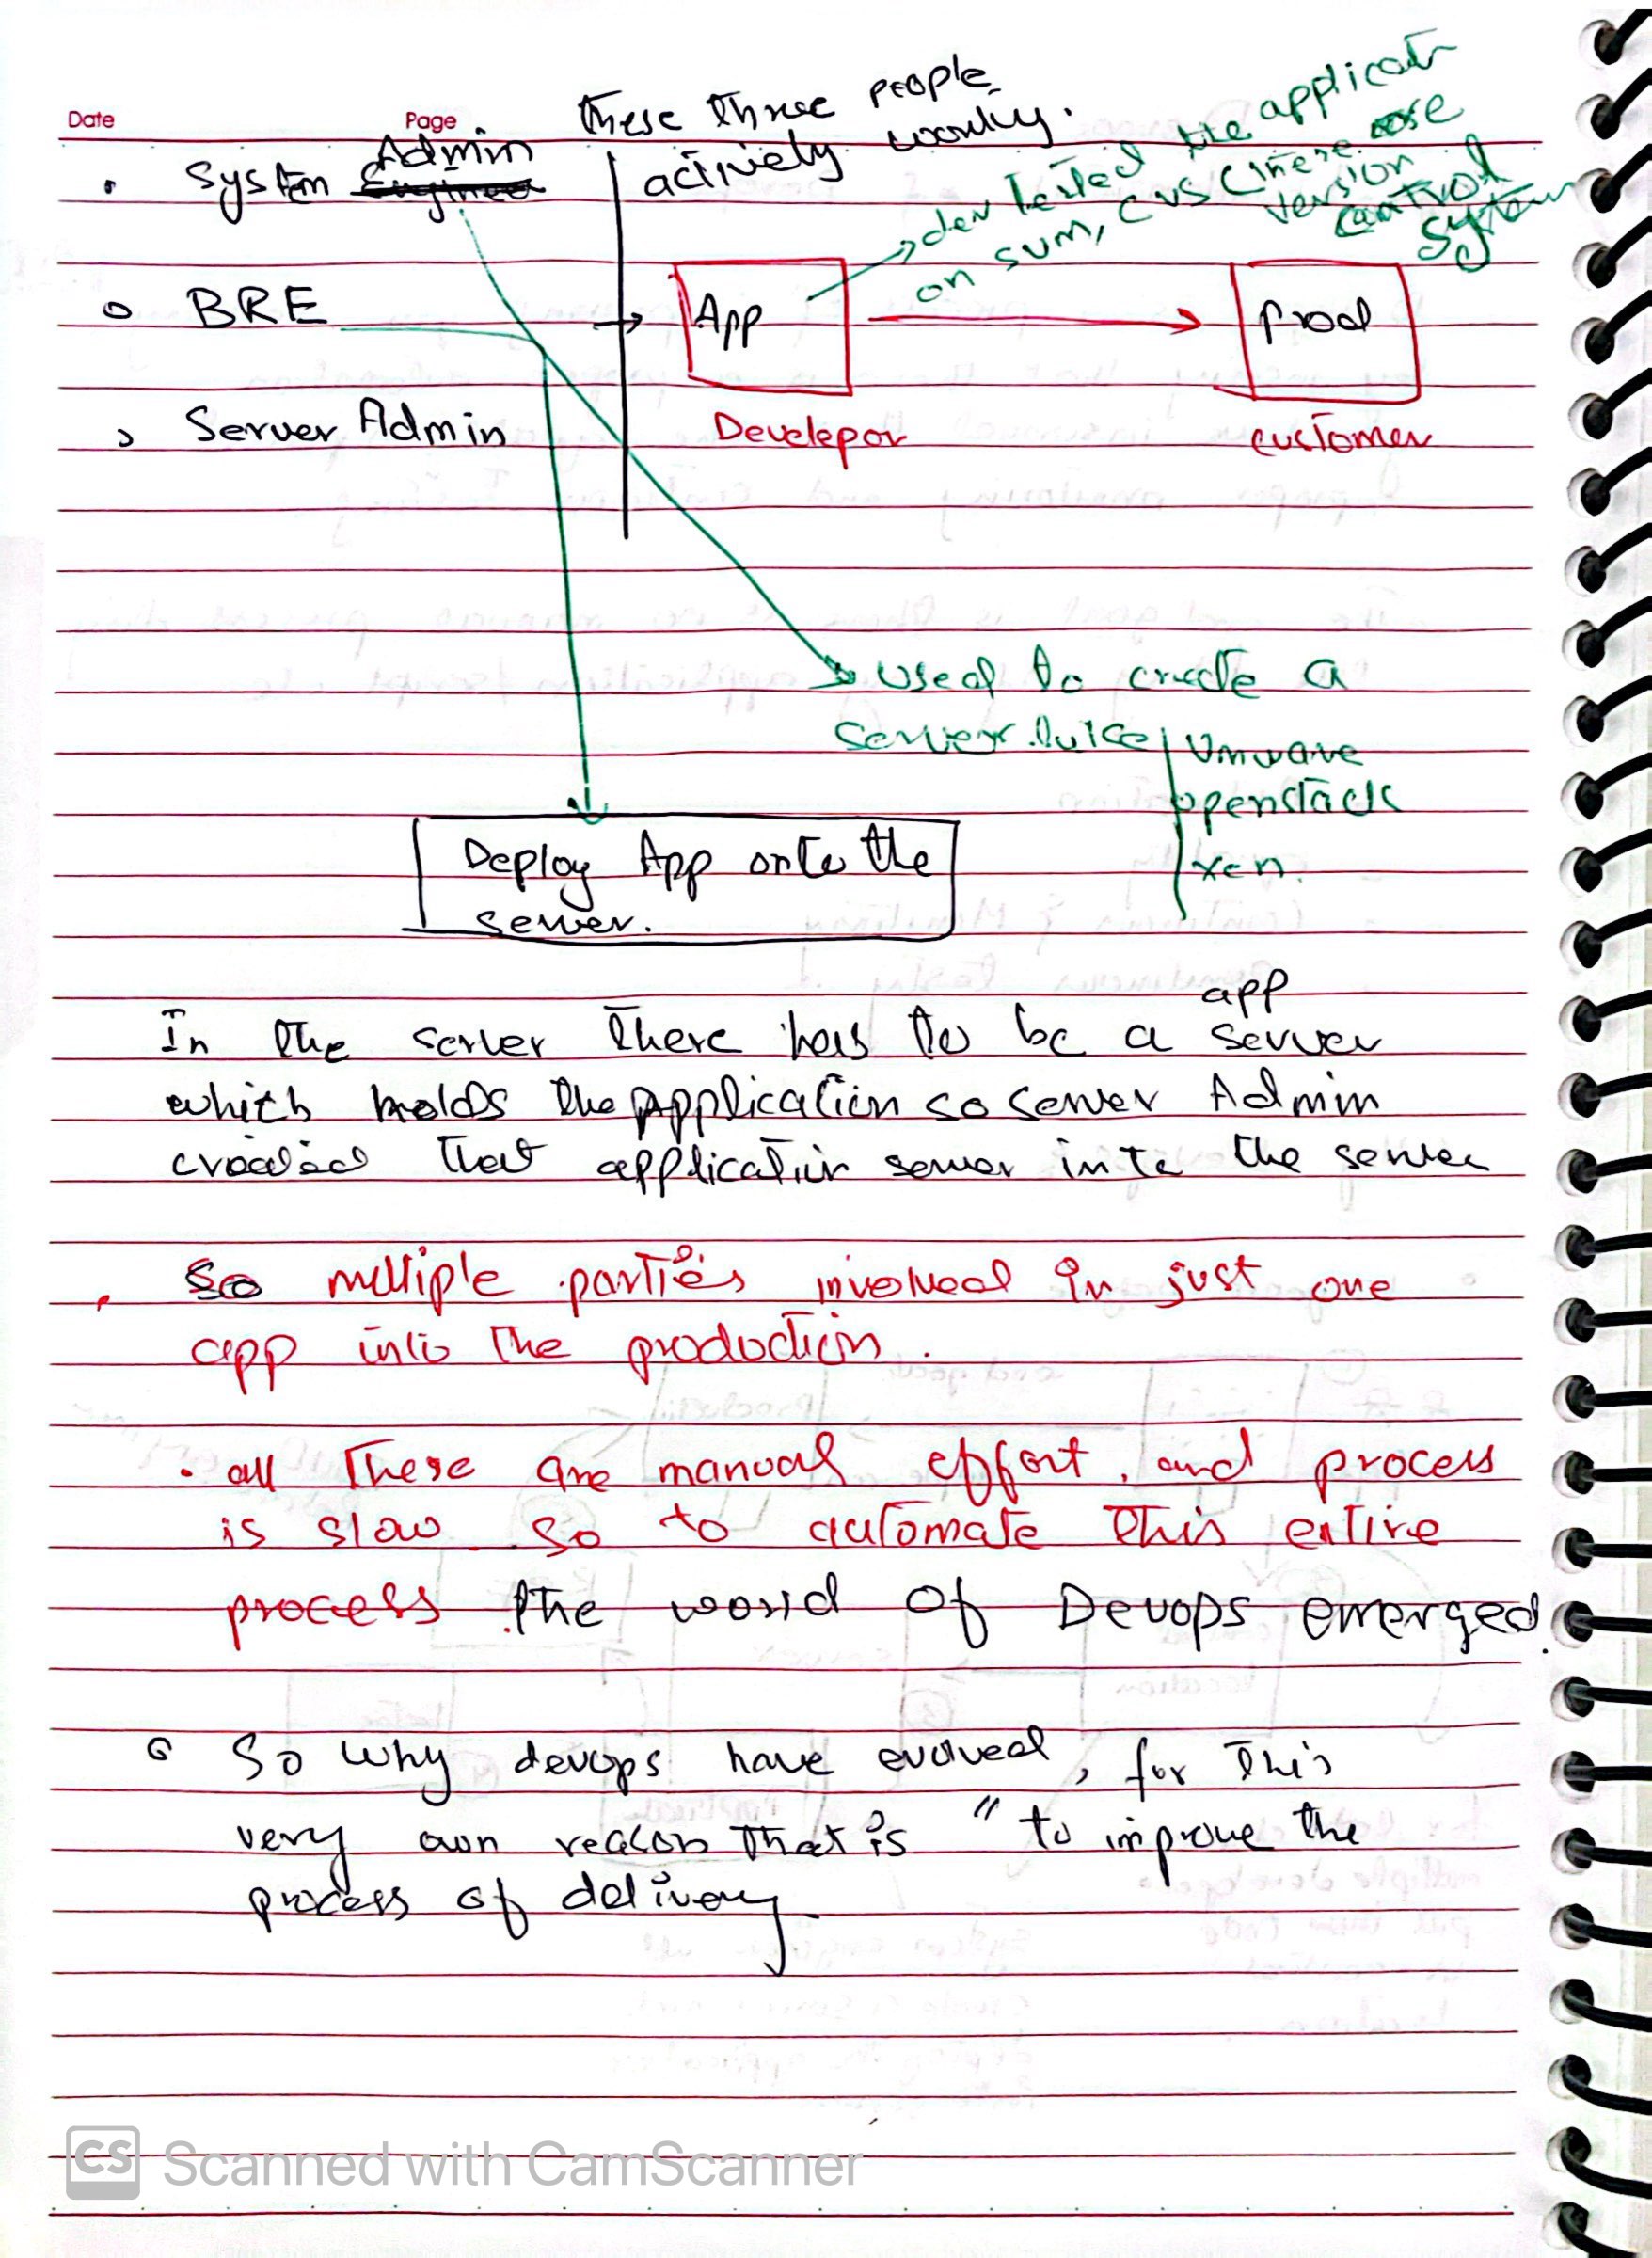 Date
Page
these three people
actively working.
• System Admin Enginee
→ dev tested the applicati
on svm, cvs (these are
version
control
system
BRE
→ App
Prod
Server Admin
Develepor
customer
used to create a
server. Vmware
openstack
xen.
Deploy App onto the
server.
app
In the server there has to be a server
which holds the Application so server Admin
created that application server into the server
• So multiple parties involved in just one
app into the production.
• all these are manual effort, and process
is slow. so to automate this entire
process. the world of Devops emerged.
So why devops have evolved, for this
very own reason that is " to improve the
process of delivery.
CS Scanned with CamScanner